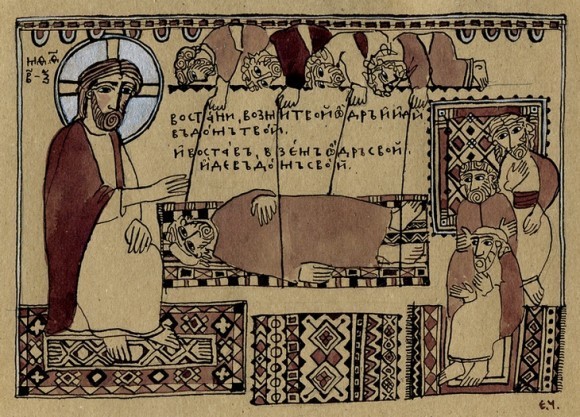 ВОСТАНИ, ВОЗМИ ТВОЙ ѺДРЪ И ИДИ
ВЪ ДОМЪ ТВОЙ.
И ВОСТАВЪ, ВЗЕМЪ ѺДРЪ СВОЙ,
ИДЕ ВЪ ДОМЪ СВОЙ.
Е.Ч.